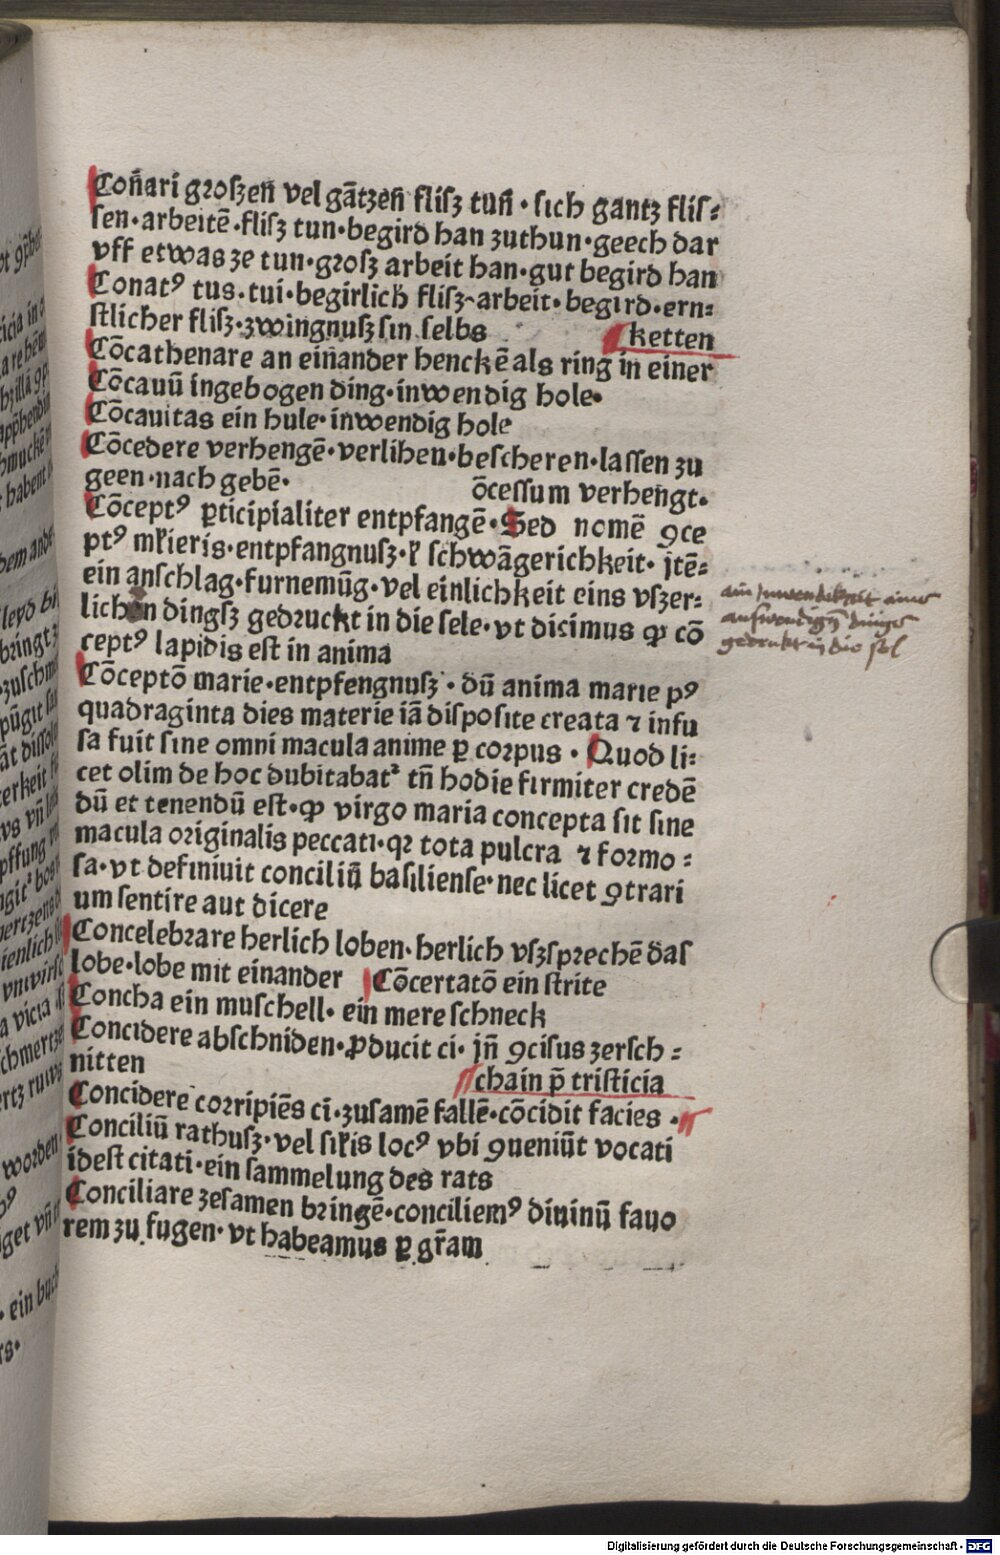 Con̄ari groſzen̄ vel gātzen̄ fliſz tun̄ · ſich gantz fliſ⸗
ſen·arbeitē·fliſz tun·begird han zuthun·geech dar
vff etwas ze tun·groſz arbeit han·gut begird han
Conatꝰ tus·tui·begirlich fliſz·arbeit·begird·ern⸗
ſtlicher fliſz·zwingnuſz ſin ſelbs
ketten
Cōcathenare an einander henckē als ring in einer
Cōcauū ingebogen ding·inwendig hole·
Cōcauitas ein hule·inwendig hole
Cōcedere verhengē·verlihen·beſcheren·laſſen zu
geen·nach gebē· ōceſſum verhengt·
Cōceptꝰ ꝑticipialiter entpfangē·Sed nomē ꝯce
ptꝰ mlieris·entpfangnuſz·ł ſchwāgerichkeit· jtē⸗
ein anſchlag·furnemūg·vel einlichkeit eins vſzer⸗
lichen dingſz gedruckt in die ſele·vt dicimus ꝙ cō
ceptꝰ lapidis eſt in anima
Cōceptō marie·entpfengnuſz · dū anima marie pꝰ
quadraginta dies materie iā diſpoſite creata ⁊ infu
ſa fuit ſine omni macula anime ꝑ corpus · Quod li⸗
cet olim de hoc dubitabatᷣ tn̄ hodie firmiter credē
dū et tenendū eſt·ꝙ virgo maria concepta ſit ſine
macula originalis peccati·qꝛ tota pulcra ⁊ formo⸗
ſa·vt definiuit conciliū baſilienſe·nec licet ꝯtrari
um ſentire aut dicere
Concelebrare herlich loben·herlich vſzſprechē das
lobe·lobe mit einander Cōcertatō ein ſtrite
Concha ein muſchell· ein mere ſchneck
Concidere abſchniden·ꝓducit ci· jn̄ ꝯciſus zerſch⸗
nitten
chain p̄ triſticia
Concidere corripiēs ci·zuſamē fallē·cōcidit facies ·
Conciliū rathuſz·vel ſilis locꝰ vbi ꝯueniūt vocati
ideſt citati·ein ſammelung des rats
Conciliare zeſamen bringē·conciliemꝰ diuinū fauo
rem zu fugen·vt habeamus ꝑ gr̄am
gedruckt in die ſel
Digitalisierung gefördert durch die Deutsche Forschungsgemeinschaft - DFG